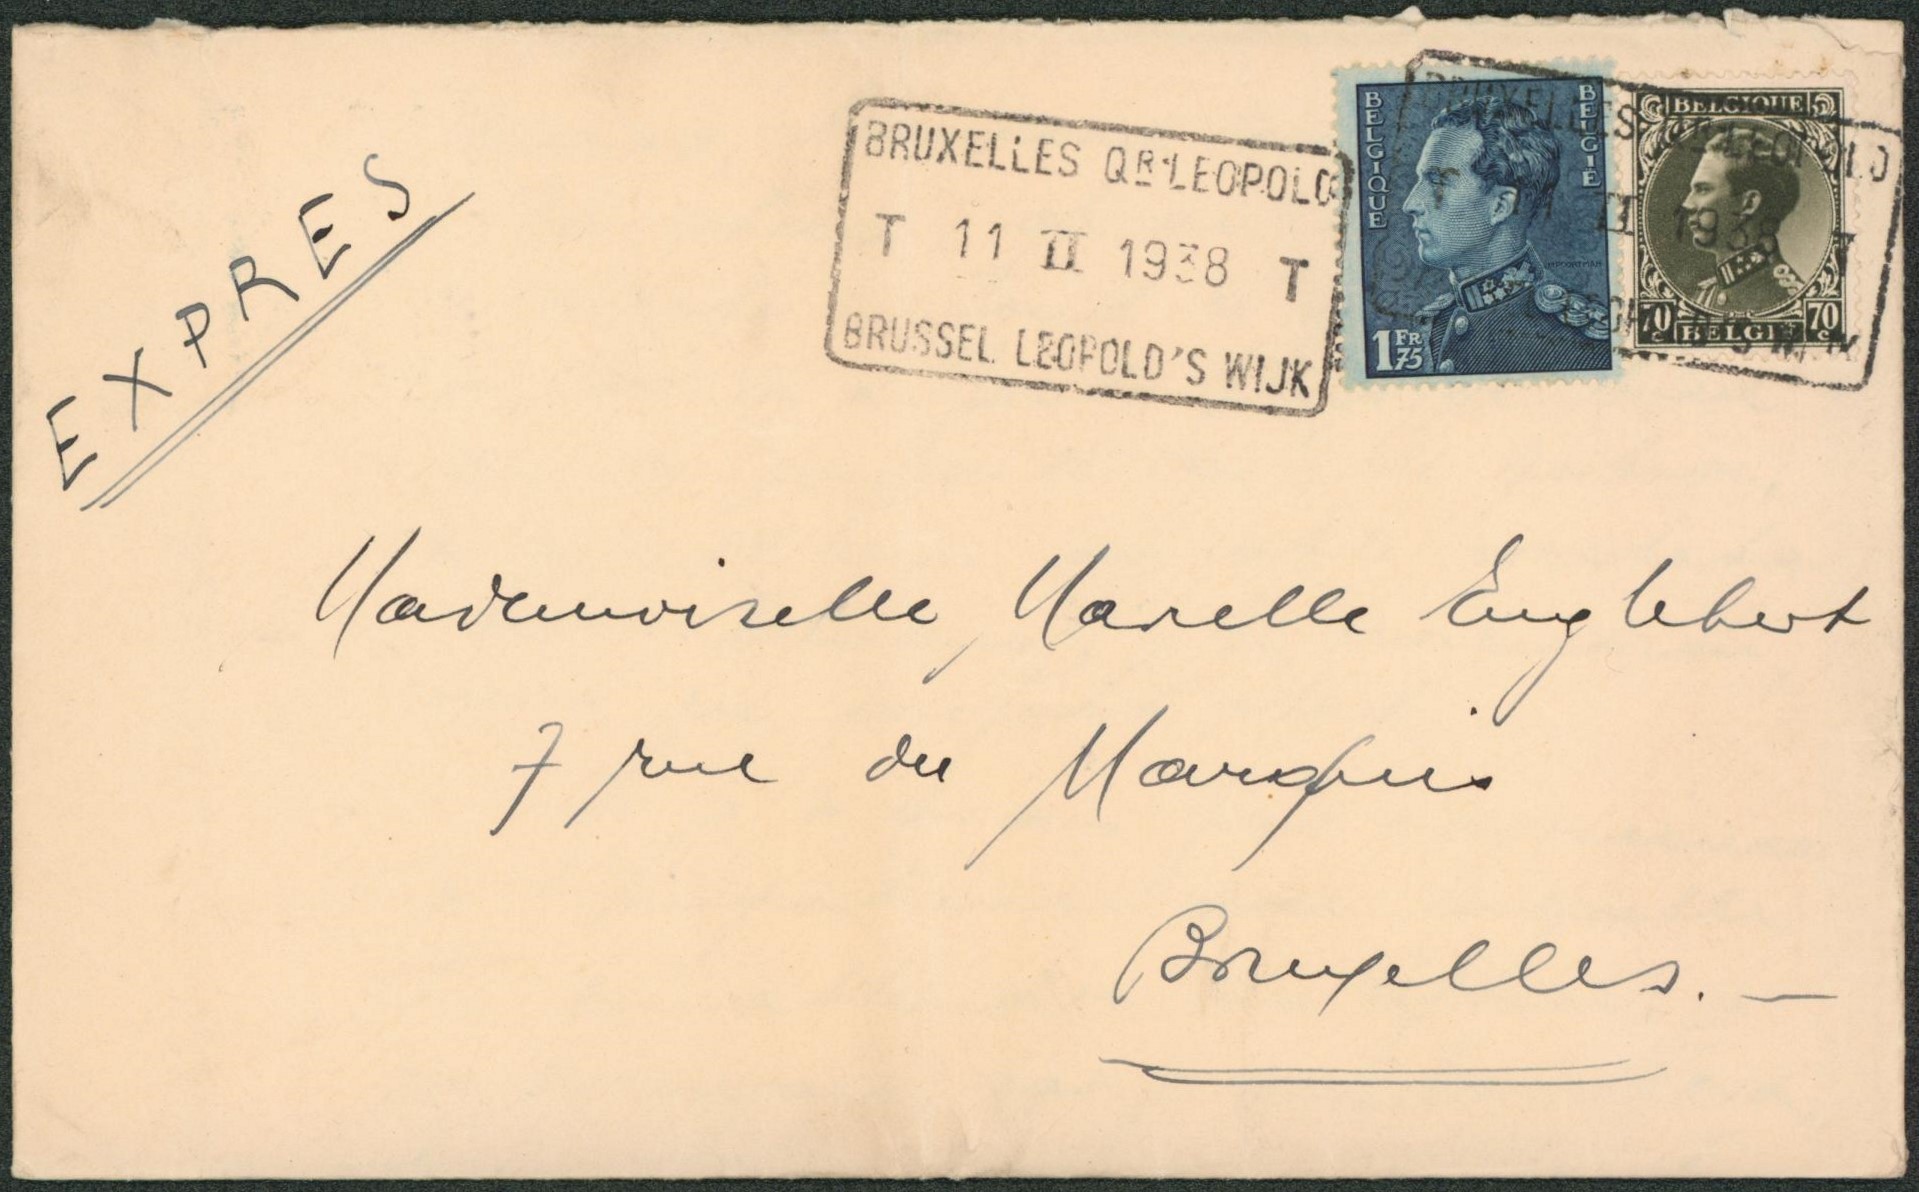 EXPRES
BRUXELLES QR LEOPOLD
T 11 II 1938 T
BRUSSEL LEOPOLD'S WIJK
BELGIQUE
BELGIË
1 FR 75
BRUXELLES LEOPOLD
II 1938 T
WIJK
BELGIQUE
70 c BELGIË 70 c
Mademoiselle Marelle Englebert
7 rue du Marquis
Bruxelles. —